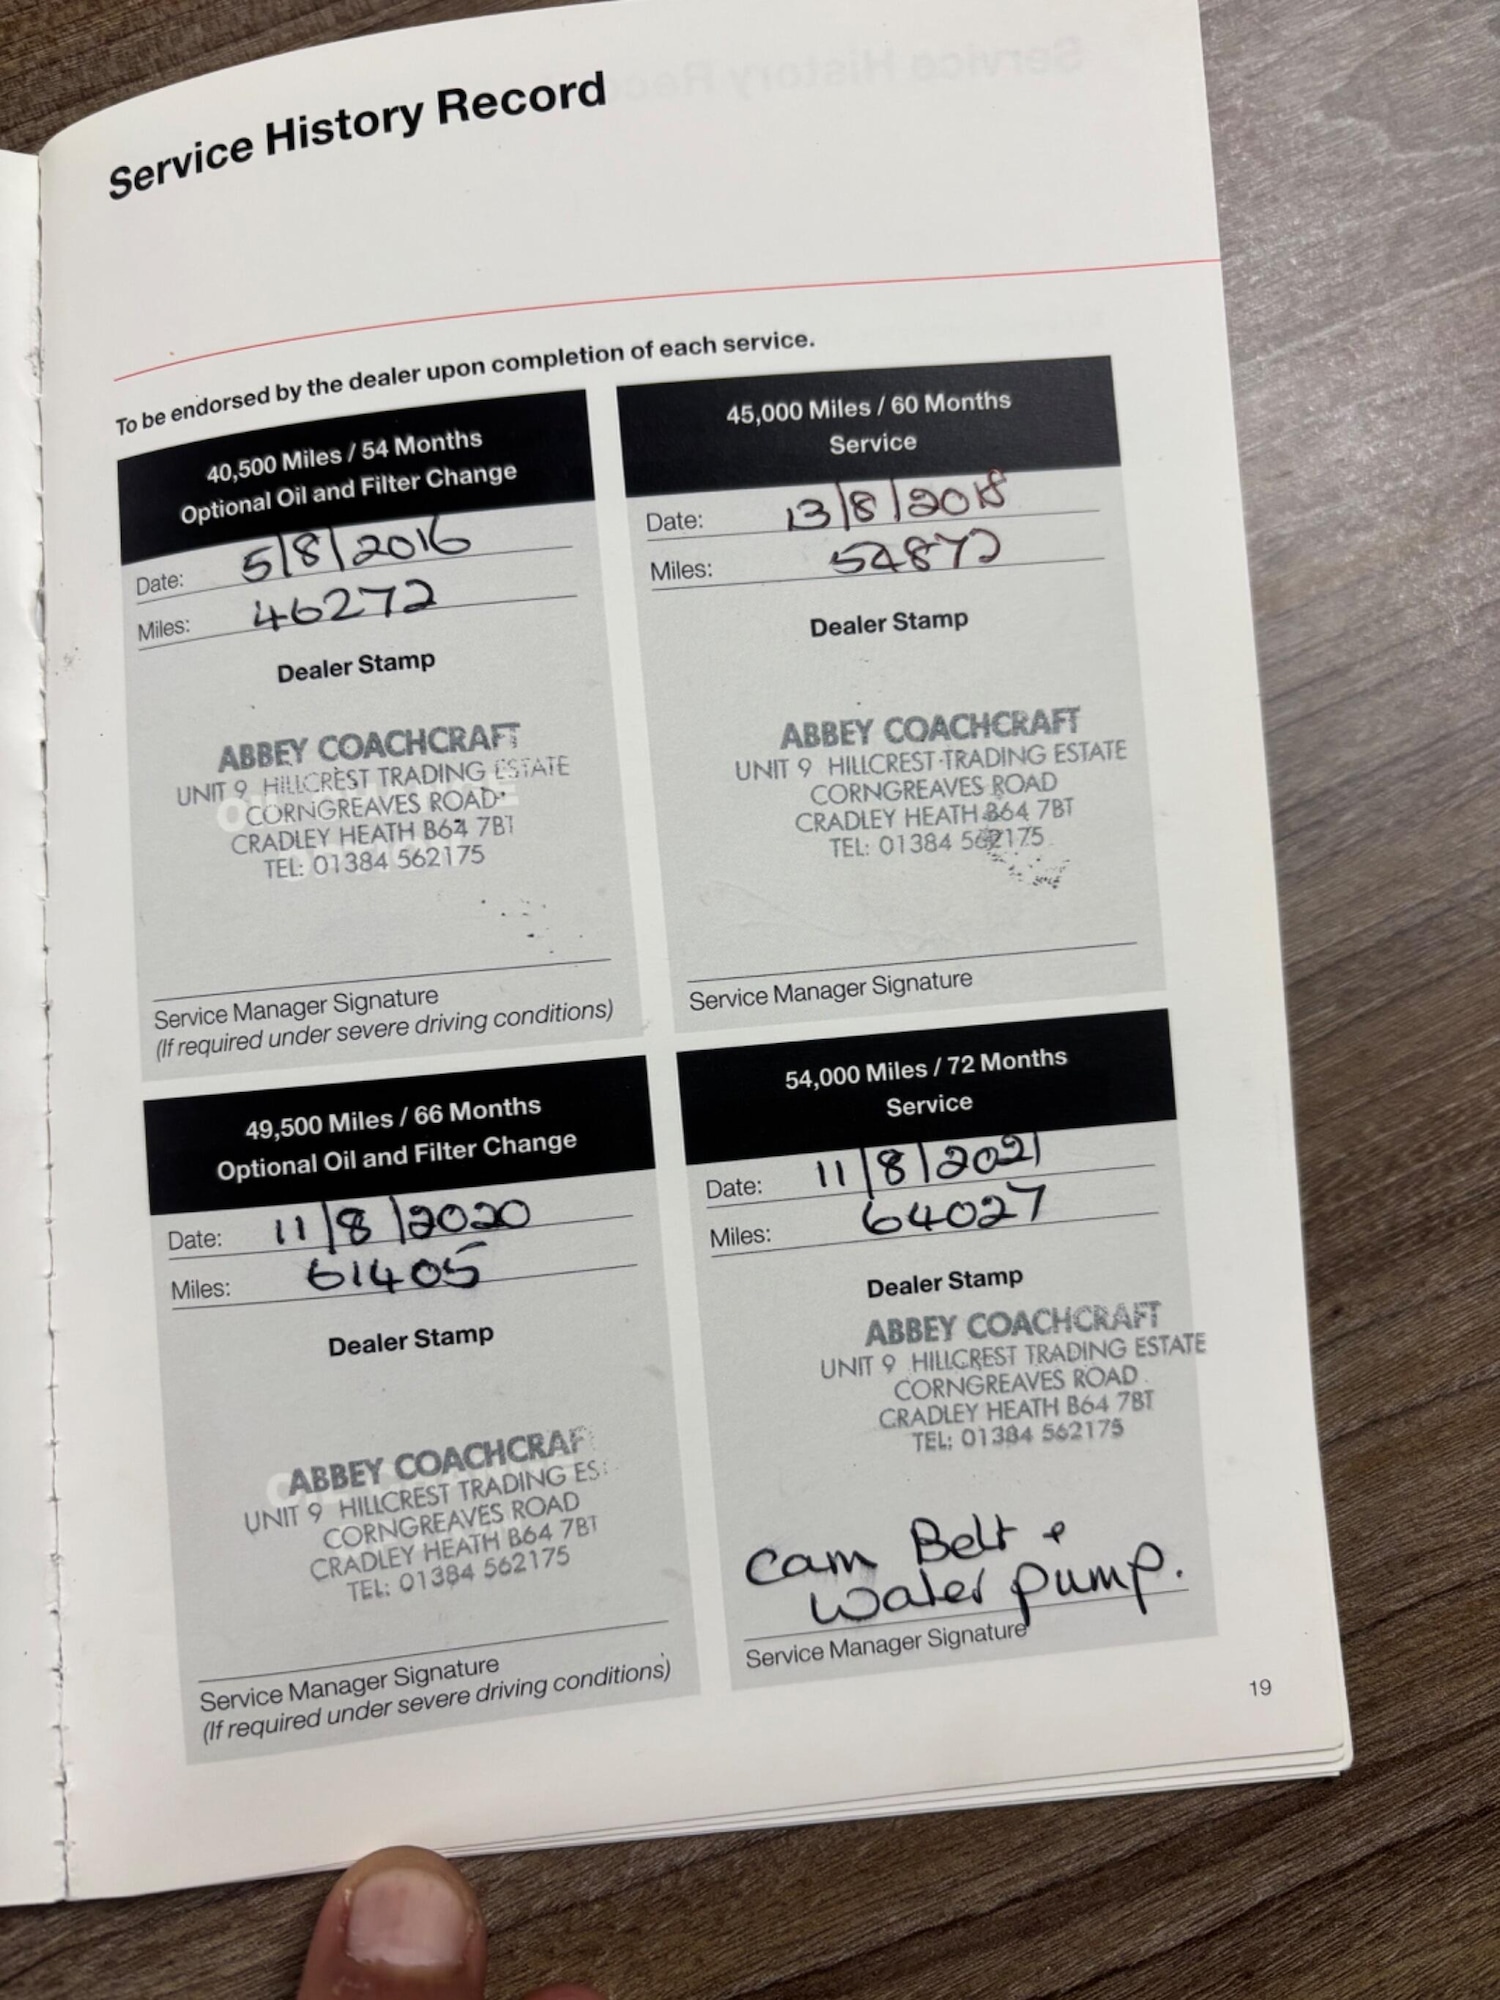 Service History Record
To be endorsed by the dealer upon completion of each service.
40,500 Miles / 54 Months
Optional Oil and Filter Change
Date: 5/8/2016
Miles: 46272
Dealer Stamp
ABBEY COACHCRAFT
UNIT 9 HILLCREST TRADING ESTATE
CORNGREAVES ROAD
CRADLEY HEATH B64 7BT
TEL: 01384 562175
Service Manager Signature
(If required under severe driving conditions)
45,000 Miles / 60 Months
Service
Date: 13/8/2018
Miles: 54872
Dealer Stamp
ABBEY COACHCRAFT
UNIT 9 HILLCREST TRADING ESTATE
CORNGREAVES ROAD
CRADLEY HEATH B64 7BT
TEL: 01384 562175
Service Manager Signature
49,500 Miles / 66 Months
Optional Oil and Filter Change
Date: 11/8/2020
Miles: 61405
Dealer Stamp
ABBEY COACHCRAF
UNIT 9 HILLCREST TRADING ES
CORNGREAVES ROAD
CRADLEY HEATH B64 7BT
TEL: 01384 562175
Service Manager Signature
(If required under severe driving conditions)
54,000 Miles / 72 Months
Service
Date: 11/8/2021
Miles: 64027
Dealer Stamp
ABBEY COACHCRAFT
UNIT 9 HILLCREST TRADING ESTATE
CORNGREAVES ROAD
CRADLEY HEATH B64 7BT
TEL: 01384 562175
Cam Belt +
Water pump.
Service Manager Signature
19